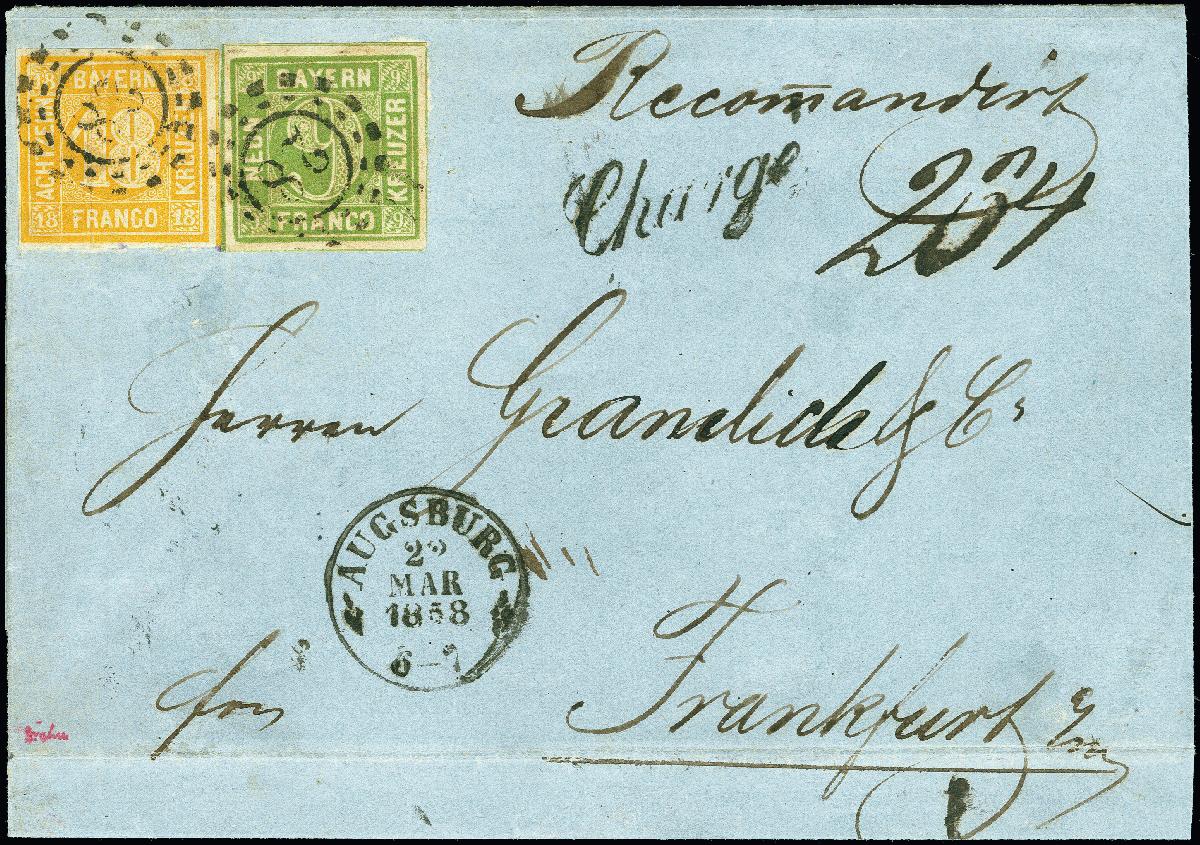 18 BAYERN 18
ACHTZEHN 18 KREUZER
18 FRANCO 18
9 BAYERN 9
NEUN 9 KREUZER
FRANCO 9
Recomandirt
Chargé
Herren Grandich & Cº
AUGSBURG
MAR
1858
6-7
fco
Frankfurt a/m